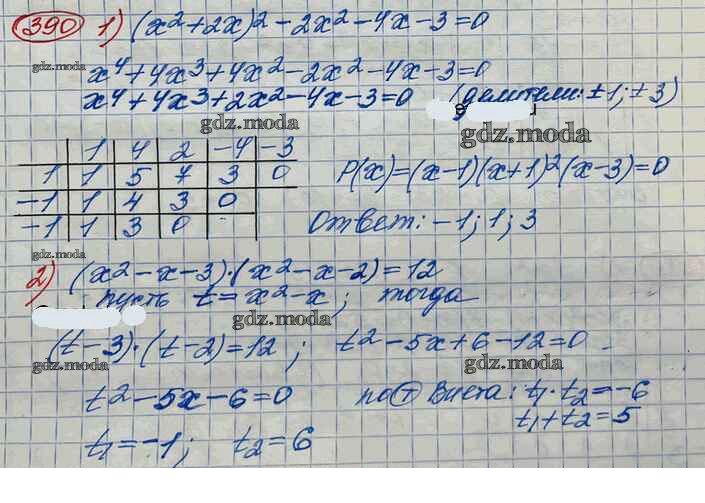 390 1) (x²+2x)²-2x²-4x-3=0
gdz.moda x⁴+4x³+4x²-2x²-4x-3=0
x⁴+4x³+2x²-4x-3=0 (делители: ±1; ±3)
gdz.moda gdz.moda
1 4 2 -4 -3
1 1 5 7 3 0 P(x)=(x-1)(x+1)²(x-3)=0
-1 1 4 3 0
-1 1 3 0 Ответ: -1; 1; 3
gdz.moda
2) (x²-x-3)·(x²-x-2)=12
пусть t=x²-x; тогда
gdz.moda
(t-3)·(t-2)=12; t²-5x+6-12=0
gdz.moda gdz.moda
t²-5x-6=0 по т Виета: t₁·t₂=-6
t₁+t₂=5
t₁=-1; t₂=6